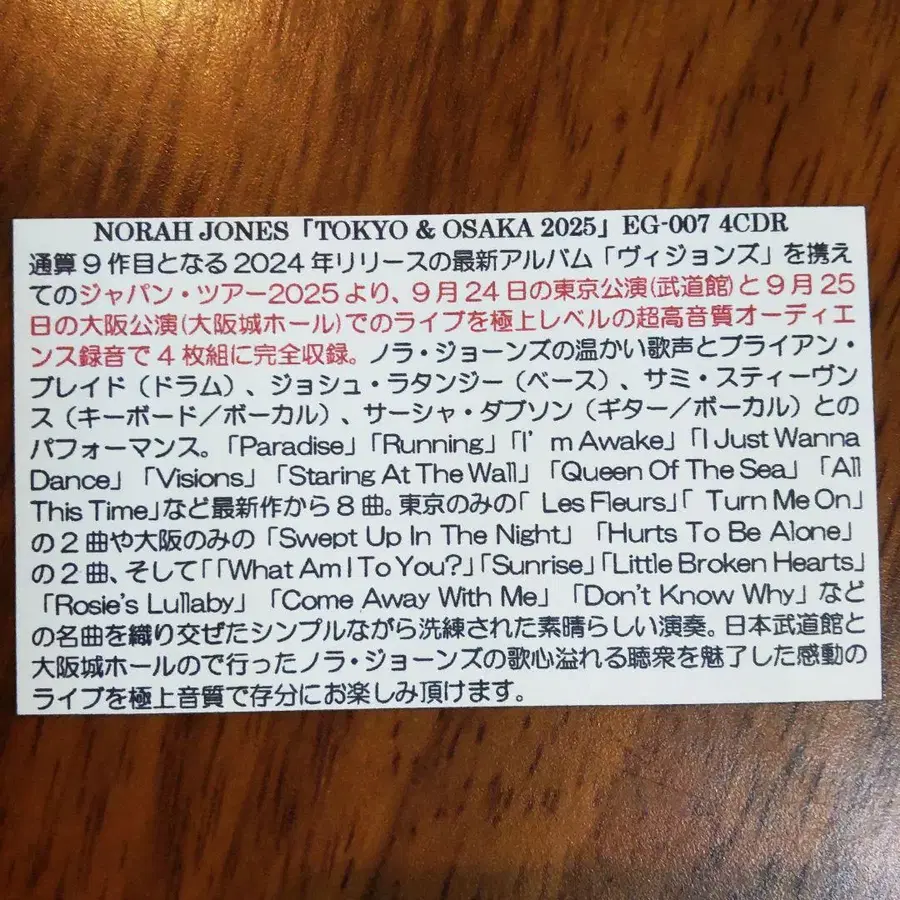 NORAH JONES「TOKYO & OSAKA 2025」EG-007 4CDR
通算9作目となる2024年リリースの最新アルバム「ヴィジョンズ」を携え
てのジャパン・ツアー2025より、9月24日の東京公演(武道館)と9月25
日の大阪公演(大阪城ホール)でのライブを極上レベルの超高音質オーディエ
ンス録音で4枚組に完全収録。ノラ・ジョーンズの温かい歌声とブライアン・
ブレイド(ドラム)、ジョシュ・ラタンジー(ベース)、サミ・スティーヴン
ス(キーボード/ボーカル)、サーシャ・ダブソン(ギター/ボーカル)との
パフォーマンス。「Paradise」「Running」「I'm Awake」「I Just Wanna
Dance」「Visions」「Staring At The Wall」「Queen Of The Sea」「All
This Time」など最新作から8曲。東京のみの「Les Fleurs」「Turn Me On」
の2曲や大阪のみの「Swept Up In The Night」「Hurts To Be Alone」
の2曲、そして「「What Am I To You?」「Sunrise」「Little Broken Hearts」
「Rosie's Lullaby」「Come Away With Me」「Don't Know Why」など
の名曲を織り交ぜたシンプルながら洗練された素晴らしい演奏。日本武道館と
大阪城ホールので行ったノラ・ジョーンズの歌心溢れる聴衆を魅了した感動の
ライブを極上音質で存分にお楽しみ頂けます。